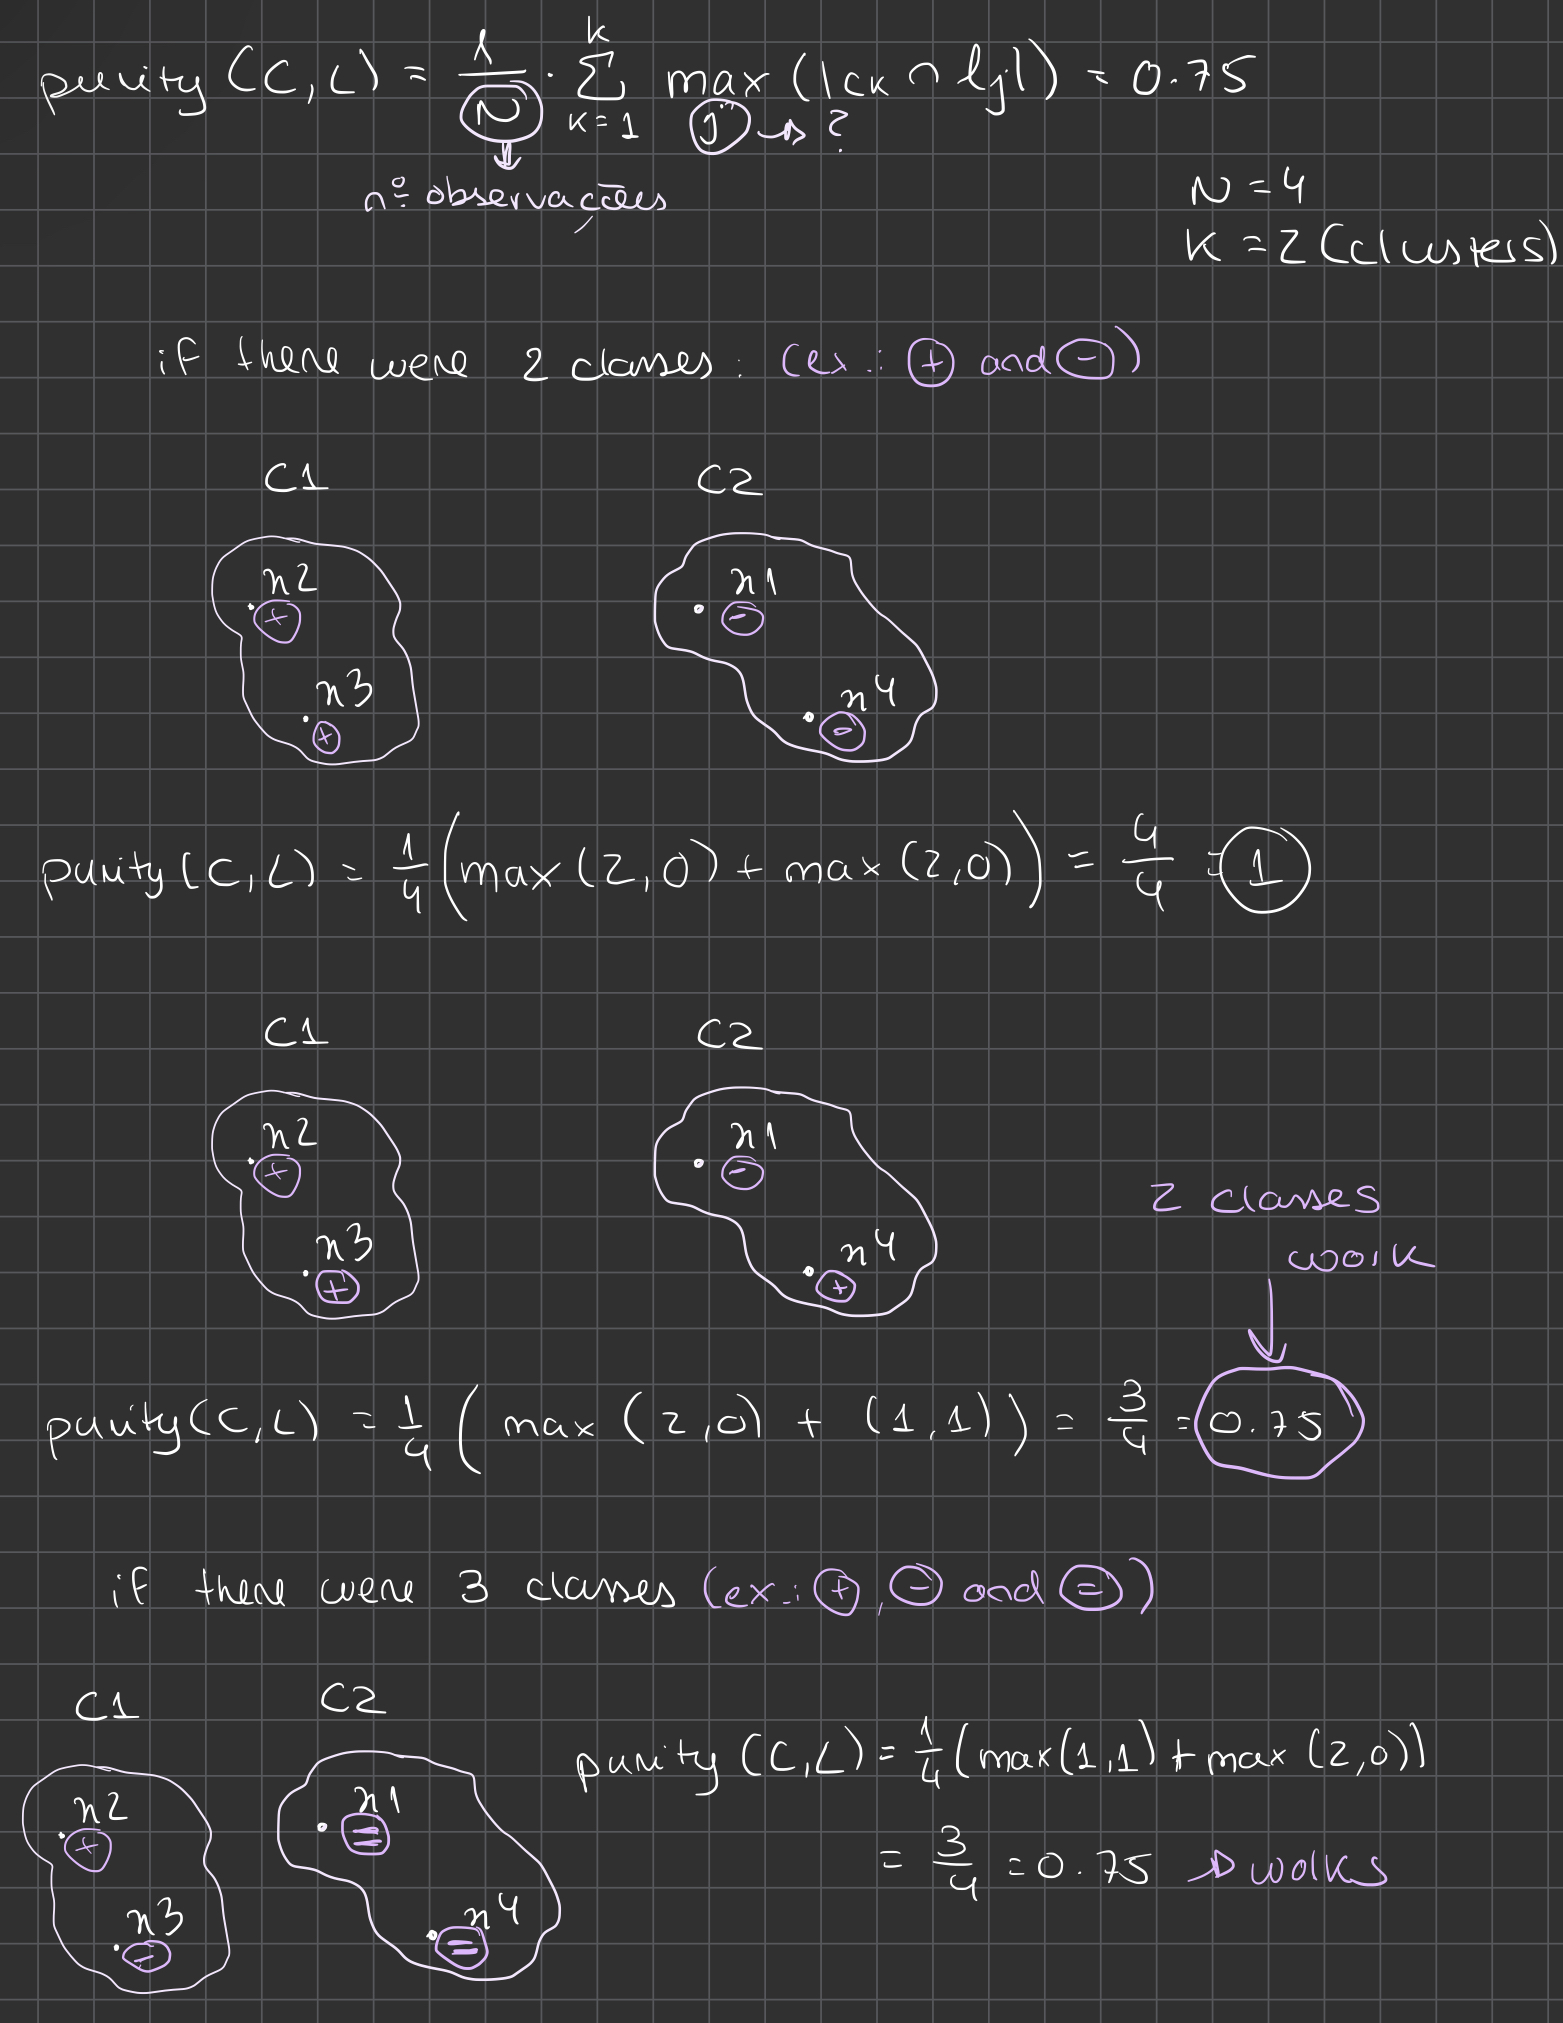 purity (C,L) = 1/N · Σ max (|ck ∩ lj|) = 0.75
K
K=1 j → ?
nº observações
N = 4
K = 2 (clusters)
if there were 2 classes: (ex.: + and -)
C1 C2
x2 x1
+ -
x3 x4
+ -
purity (C,L) = 1/4 (max (2,0) + max (2,0)) = 4/4 = 1
C1 C2
x2 x1
+ -
2 classes
x3 x4
work
+ +
purity (C,L) = 1/4 ( max (2,0) + (1,1)) = 3/4 = 0.75
if there were 3 classes (ex.: +, - and =)
C1 C2
purity (C,L) = 1/4 (max(1,1) + max (2,0))
x2 x1
+ =
= 3/4 = 0.75 → works
x3 x4
- =